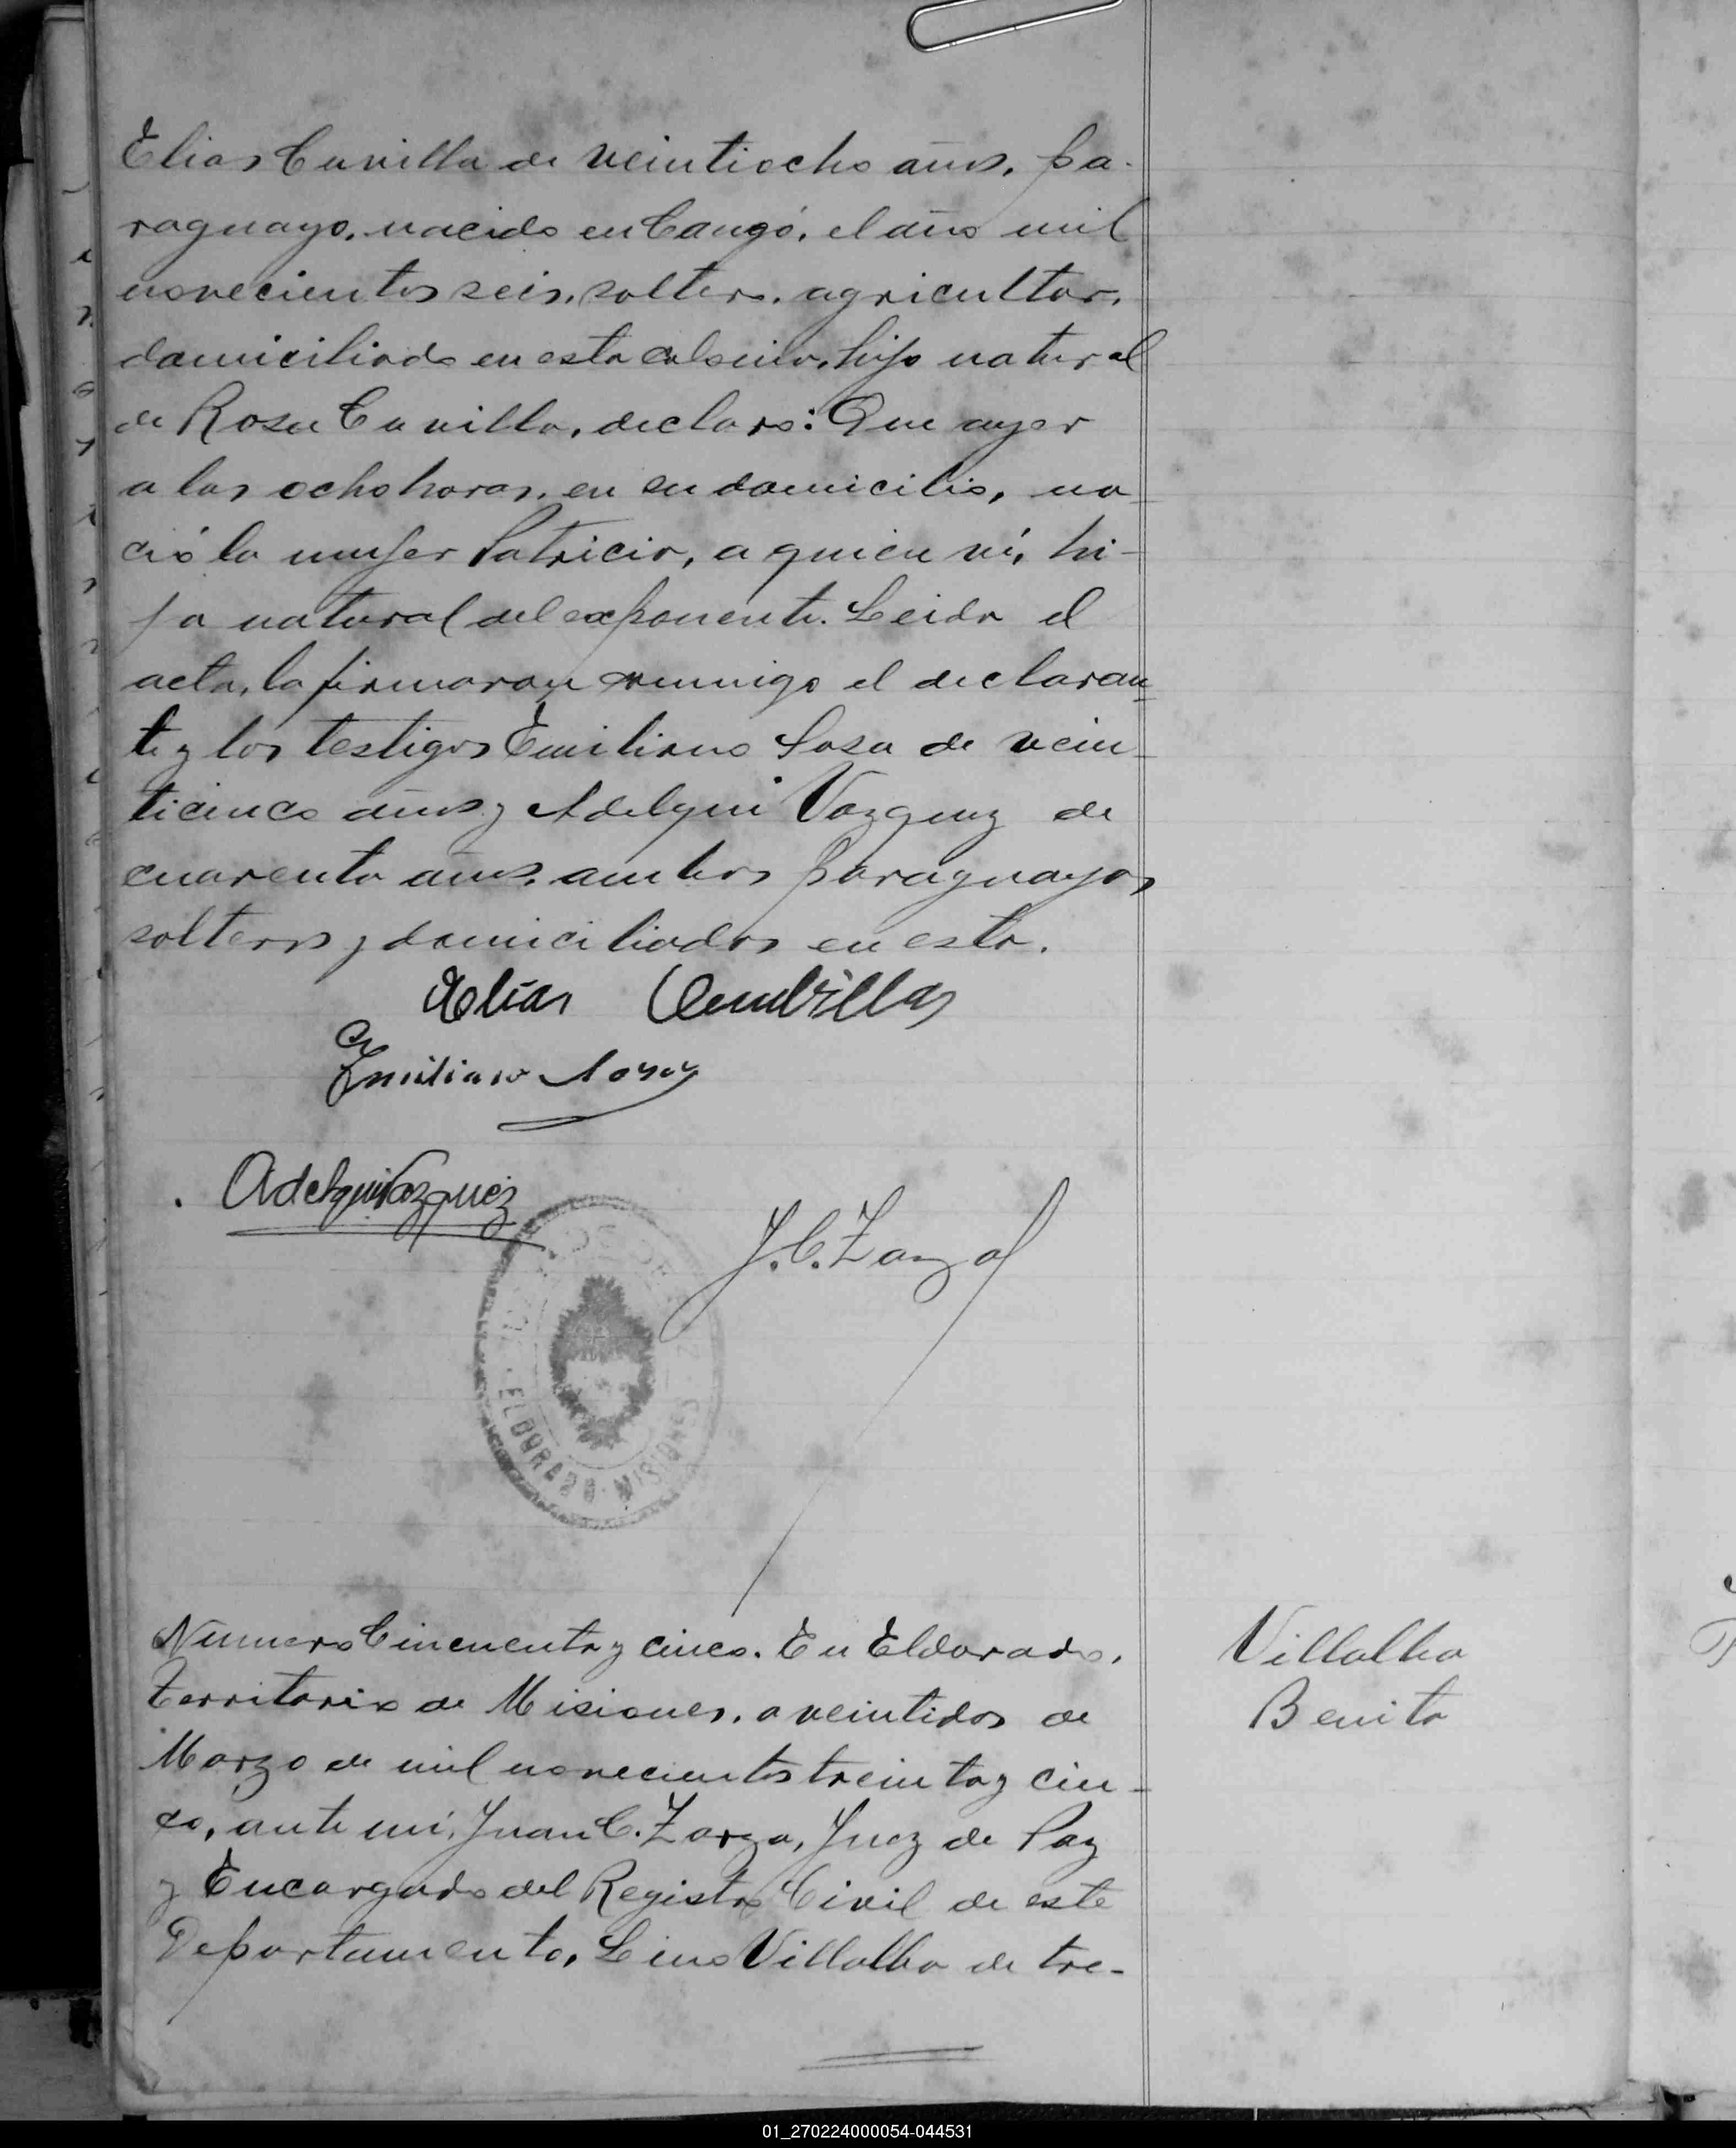 Elias Cuvilla de veintiocho años, pa-
raguayo, nacido en Cangó, el año mil
novecientos seis, soltero, agricultor,
domiciliado en esta colonia, hijo natural
de Rosa Cuvilla, declaró: Que ayer
a las ocho horas, en su domicilio, na
ció la mujer Patricia, a quien ví, hi-
ja natural del exponente. Leida el
acta, la firmaron conmigo el declaran
te y los testigos Emiliano Sosa de vein-
ticinco años y Adelqui Vazquez de
cuarenta años, ambos paraguayos
solteros y domiciliados en esta.
Elias
Emiliano Sosa
Adelqui Vazquez
J. C. Zarza
ELDORADO MISIONES
Número Cincuenta y cinco. En Eldorado,
Territorio de Misiones, a veintidos de
Marzo de mil novecientos treinta y cin-
co, ante mí, Juan C. Zarza, Juez de Paz
y Encargado del Registro Civil de este
Departamento, Lino Villalba de tre-
Villalba
Benita
01_270224000054-044531